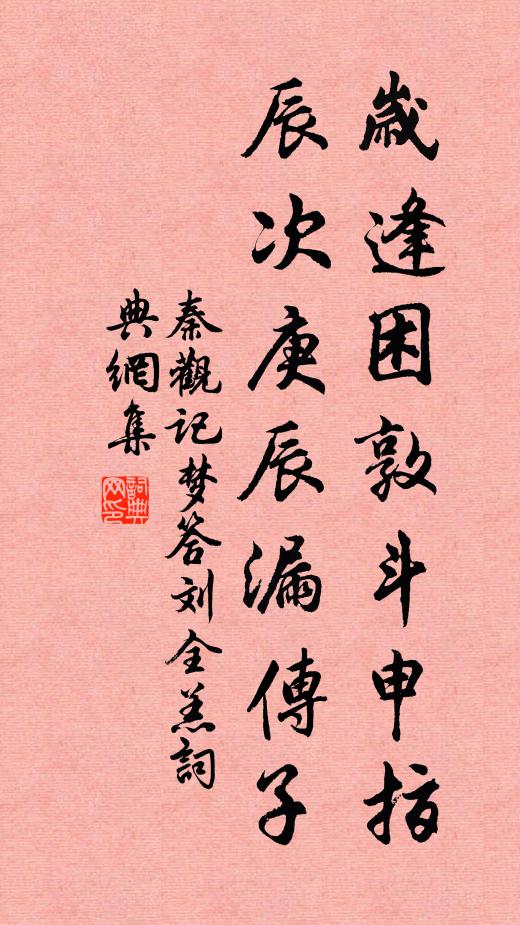 歲逢困敦斗申指
辰次庚辰漏傳子
秦觀记梦答刘全美詞
典網集
詞典網印